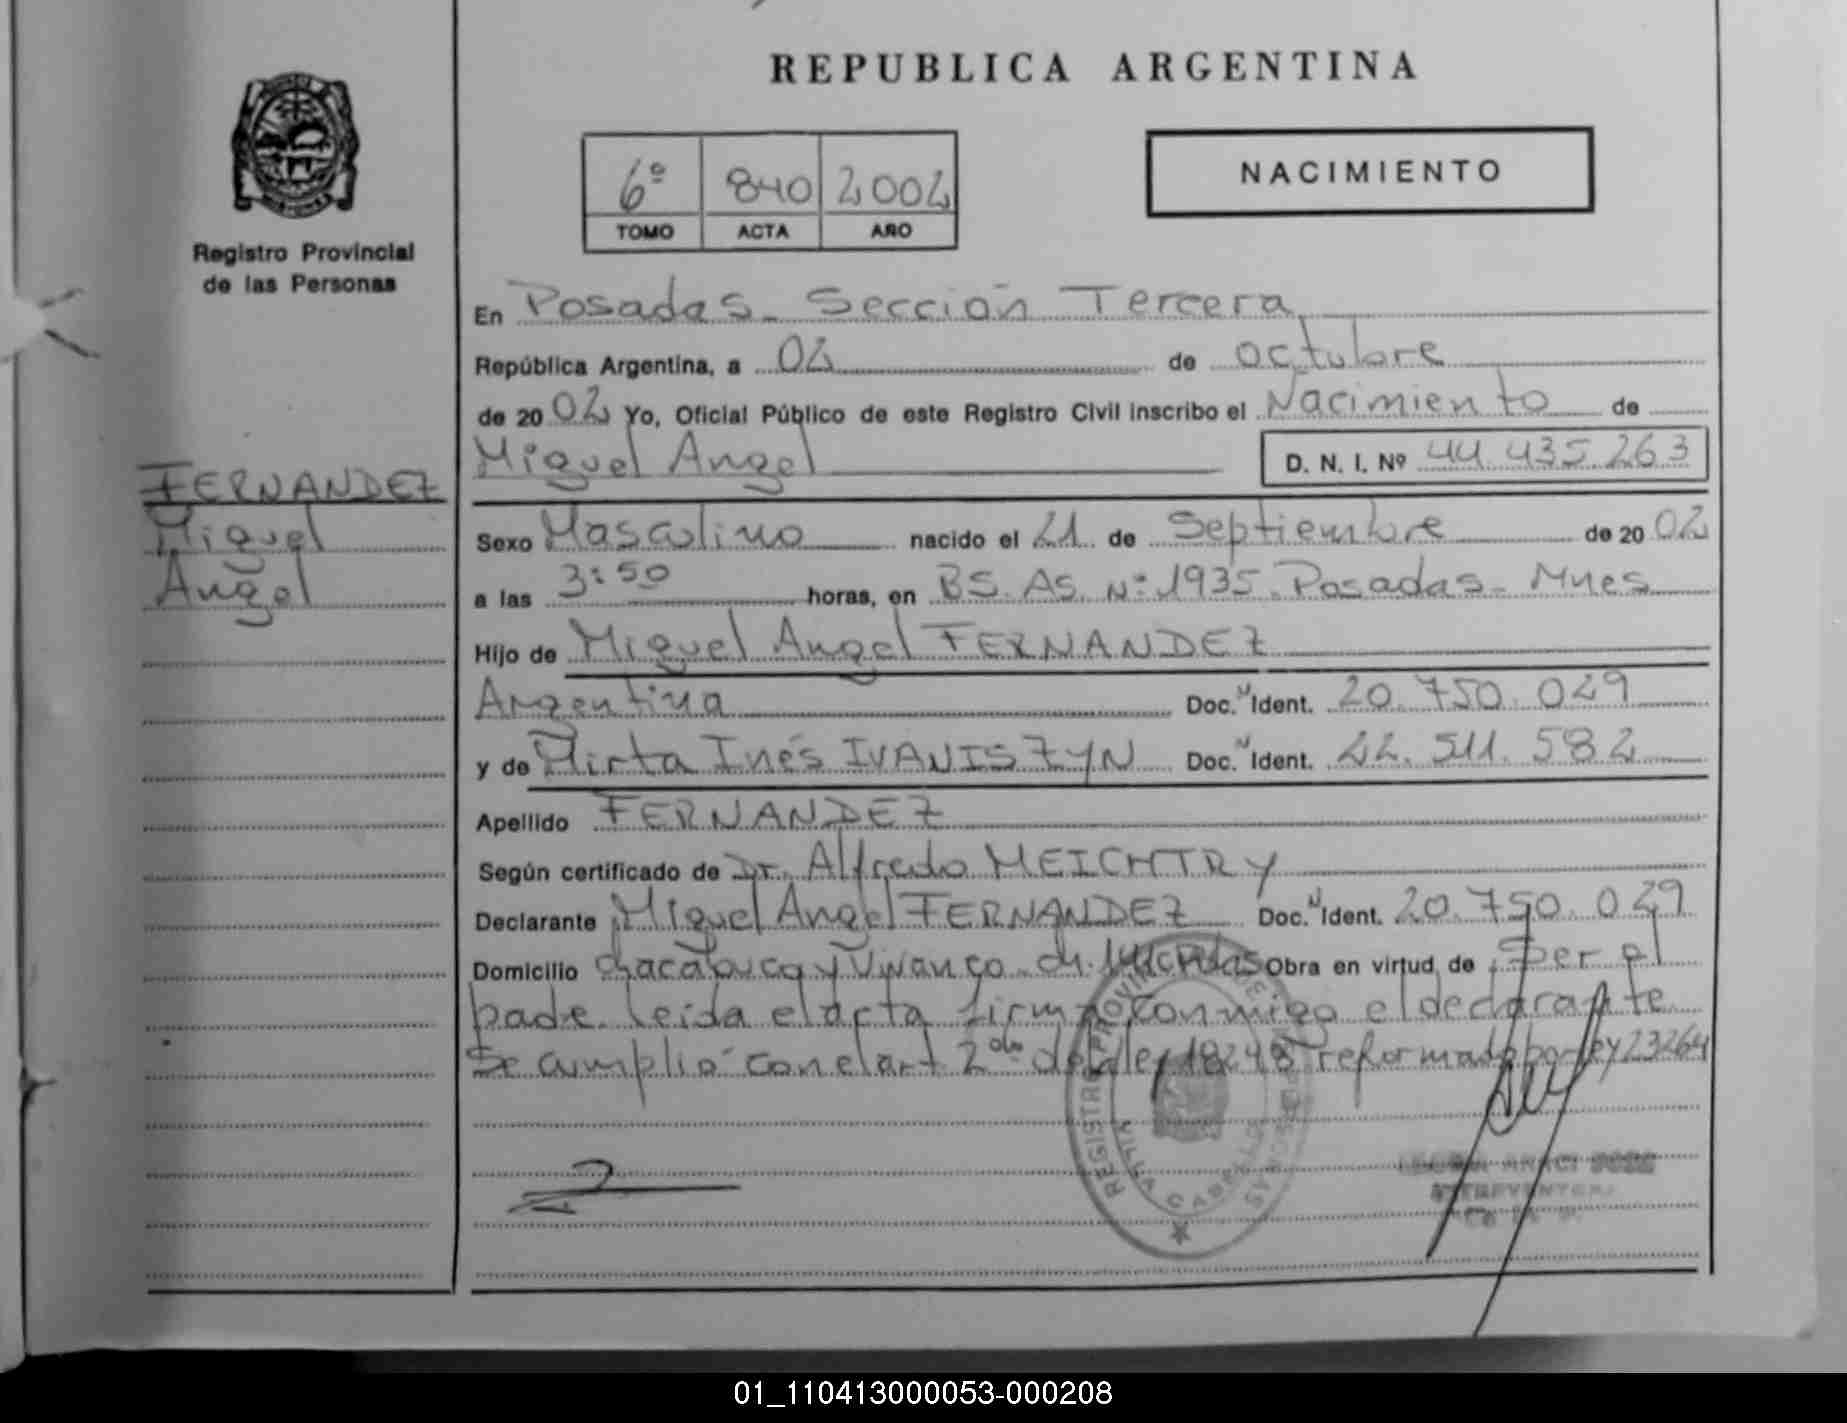 REPUBLICA ARGENTINA
6º 840 2002
TOMO ACTA AÑO
NACIMIENTO
Registro Provincial
de las Personas
En Posadas - Sección Tercera
República Argentina, a 02 de octubre
de 20 02 Yo, Oficial Público de este Registro Civil inscribo el Nacimiento de
Miguel Angel D. N. I. Nº 44.435.263
FERNANDEZ
Miguel
Angel
Sexo Masculino nacido el 21 de Septiembre de 20 02
a las 3:50 horas, en BS. AS. Nº 1935. Posadas - Mnes
Hijo de Miguel Angel FERNANDEZ
Argentina Doc. N Ident. 20.750.029
y de Mirta Inés IVANISZYN Doc. N Ident. 22.511.582
Apellido FERNANDEZ
Según certificado de Dr. Alfredo MEICHTRY
Declarante Miguel Angel FERNANDEZ Doc. N Ident. 20.750.029
Domicilio Chacabuco y Vivanco - Ch. Obra en virtud de Ser el
padre. Leida el acta firma conmigo el declarante
Se cumplió con el art 2do de la ley 18248 reformado por ley 23264
REGISTRO PROVINCIAL
MISIONES
01_110413000053-000208